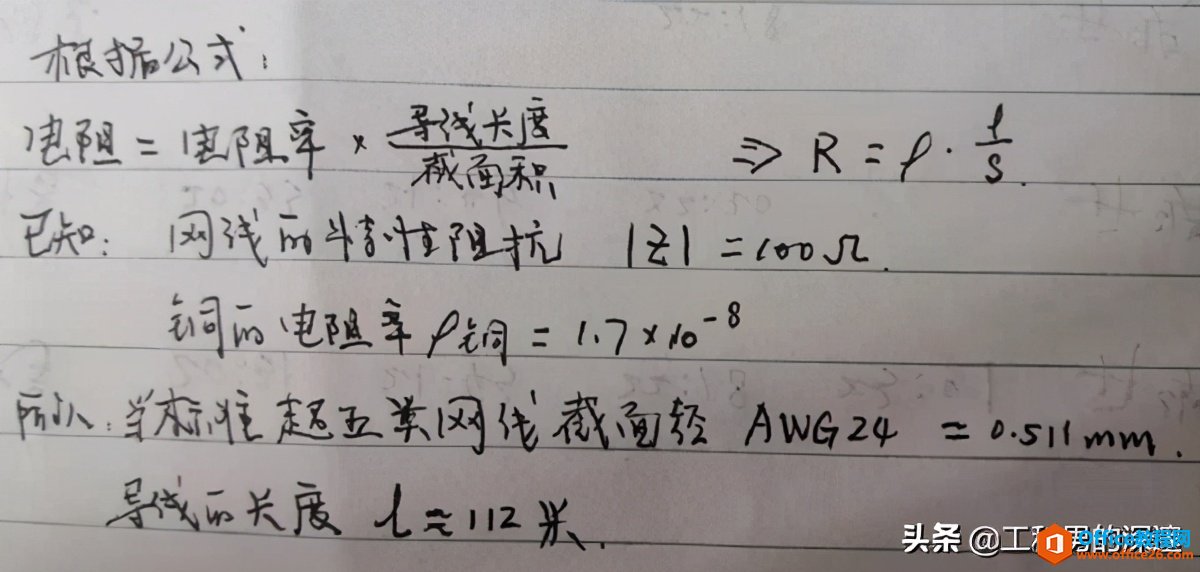 根据公式:
电阻 = 电阻率 × 导线长度/截面积 ⇒ R = ρ · l/S.
已知: 网线的特性阻抗 |Z| = 100Ω.
铜的电阻率 ρ铜 = 1.7×10⁻⁸
所以: 当标准超五类网线截面径 AWG24 = 0.511mm.
导线的长度 l ≈ 112 米.
头条 @工程男的深邃
Office教程网
www.office26.com